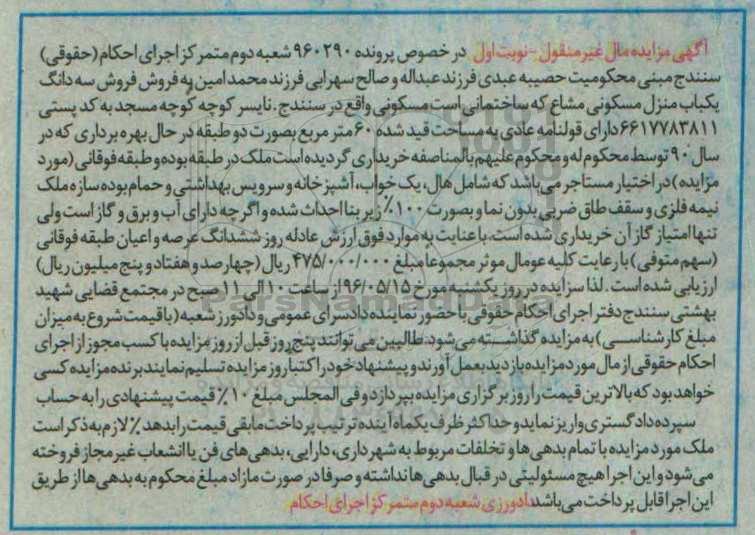 آگهی مزایده مال غیر منقول - نوبت اول در خصوص پرونده ۹۶۰۲۹۰ شعبه دوم متمرکز اجرای احکام (حقوقی)
سنندج مبنی محکومیت حصیبه عبدی فرزند عبداله و صالح سهرابی فرزند محمد امین به فروش فروش سه دانگ
یکباب منزل مسکونی مشاع که ساختمانی است مسکونی واقع در سنندج . نایسر کوچه کوچه مسجد به کد پستی
۶۶۱۷۷۸۳۸۱۱ دارای قولنامه عادی به مساحت قید شده ۶۰ متر مربع بصورت دو طبقه در حال بهره برداری که در
سال ۹۰ توسط محکوم له و محکوم علیهم بالمناصفه خریداری گردیده است ملک در طبقه بوده و طبقه فوقانی (مورد
مزایده) در اختیار مستاجر می باشد که شامل هال ، یک خواب ، آشپزخانه و سرویس بهداشتی و حمام بوده سازه ملک
نیمه فلزی و سقف طاق ضربی بدون نما و بصورت ۱۰۰٪ زیر بنا احداث شده و اگرچه دارای آب و برق و گاز است ولی
تنها امتیاز گاز آن خریداری شده است. با عنایت به موارد فوق ارزش عادله روز ششدانگ عرصه و اعیان طبقه فوقانی
(سهم متوفی) با رعایت کلیه عومال موثر مجموعا مبلغ ۴۷۵/۰۰۰/۰۰۰ ریال (چهارصد و هفتاد و پنج میلیون ریال)
ارزیابی شده است . لذا مزایده در روز یکشنبه مورخ ۹۶/۰۵/۱۵ از ساعت ۱۰ الی ۱۱ صبح در مجتمع قضایی شهید
بهشتی سنندج دفتر اجرای احکام حقوقی با حضور نماینده دادسرای عمومی و دادورز شعبه (با قیمت شروع به میزان
مبلغ کارشناسی) به مزایده گذاشته می شود. طالبین می توانند پنج روز قبل از روز مزایده با کسب مجوز از اجرای
احکام حقوقی از مال مورد مزایده بازدید بعمل آورند و پیشنهاد خود را کتبا روز مزایده تسلیم نمایند برنده مزایده کسی
خواهد بود که بالاترین قیمت را روز برگزاری مزایده بپردازد و فی المجلس مبلغ ۱۰٪ قیمت پیشنهادی را به حساب
سپرده دادگستری واریز نماید و حداکثر ظرف یکماه آینده ترتیب پرداخت مابقی قیمت را بدهد ٪ لازم به ذکر است
ملک مورد مزایده با تمام بدهی ها و تخلفات مربوط به شهرداری ، دارایی ، بدهی های فن یا انشعاب غیر مجاز فروخته
می شود و این اجرا هیچ مسئولیتی در قبال بدهی ها نداشته و صرفا در صورت مازاد مبلغ محکوم به بدهی ها از طریق
این اجرا قابل پرداخت می باشد دادورزی شعبه دوم متمرکز اجرای احکام
ParsNamadData